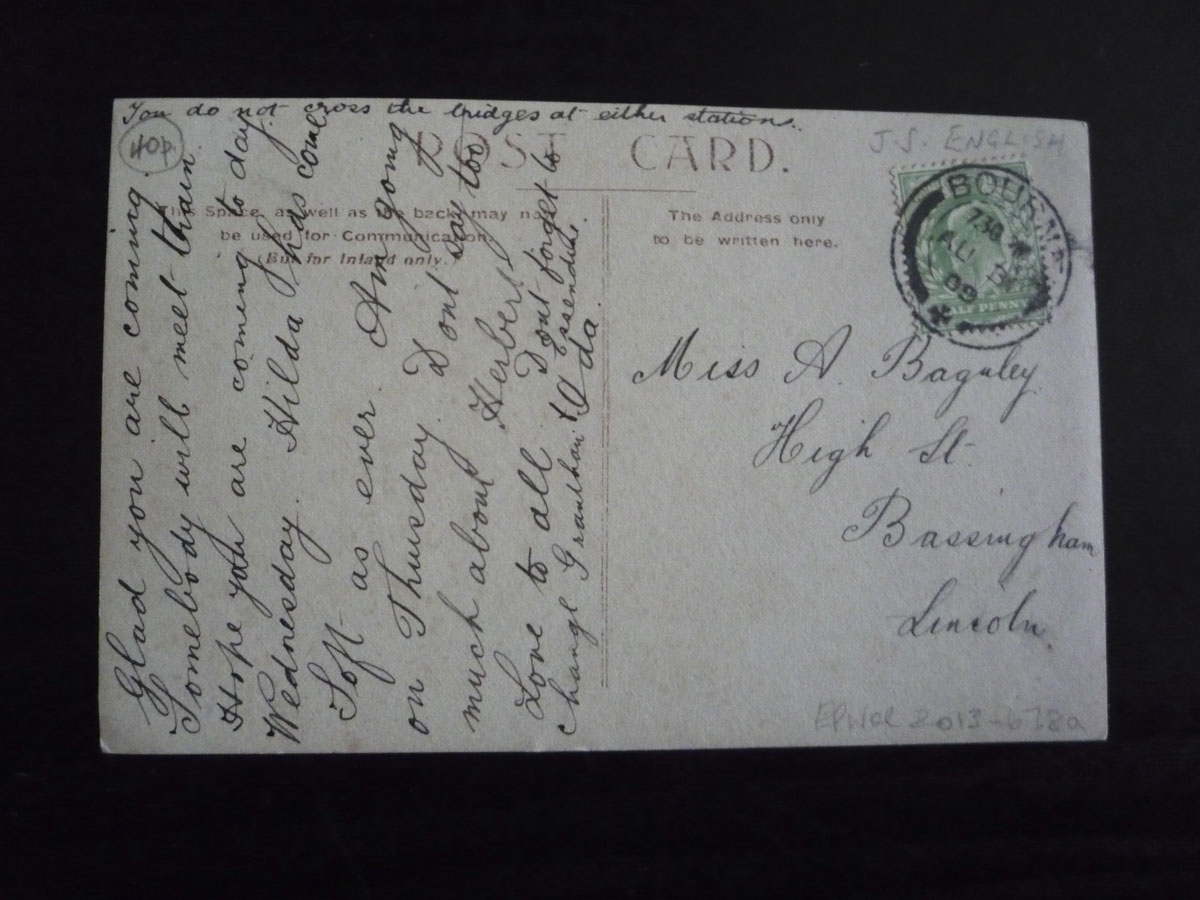 You do not cross the bridges at either stations.
40p.
POST CARD.
J.S. ENGLISH
This Space, as well as the back, may not
be used for Communication.
(But for Inland only.)
The Address only
to be written here.
BOURNE
7.30
AU
09
HALF PENNY
Glad you are coming.
Somebody will meet train.
Hope you are coming to day
Wednesday. Hilda has come
Soft as ever. Am going
on Thursday. Dont say too
much about Herbert
Love to all. Dont forget to
change Grantham & Essendine
Ada.
Miss A. Baguley
High St.
Bassingham
Lincoln
2013-678a